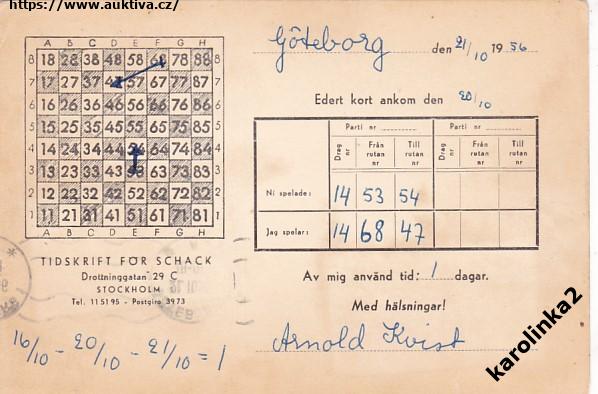 https://www.auktiva.cz/
A B C D E F G H
8 18 28 38 48 58 68 78 88 8
7 17 27 37 47 57 67 77 87 7
6 16 26 36 46 56 66 76 86 6
5 15 25 35 45 55 65 75 85 5
4 14 24 34 44 54 64 74 84 4
3 13 23 33 43 53 63 73 83 3
2 12 22 32 42 52 62 72 82 2
1 11 21 31 41 51 61 71 81 1
A B C D E F G H
TIDSKRIFT FÖR SCHACK
Drottninggatan 29 C
STOCKHOLM
Tel. 115195 - Postgiro 3973
16/10 - 20/10 - 21/10 = 1
Göteborg den 21/10 1956
Edert kort ankom den 20/10
Parti nr Parti nr
Drag nr Från rutan nr Till rutan nr Drag nr Från rutan nr Till rutan nr
Ni spelade: 14 53 54
Jag spelar: 14 68 47
Av mig använd tid: 1 dagar.
Med hälsningar!
Arnold Kvist
karolinka2